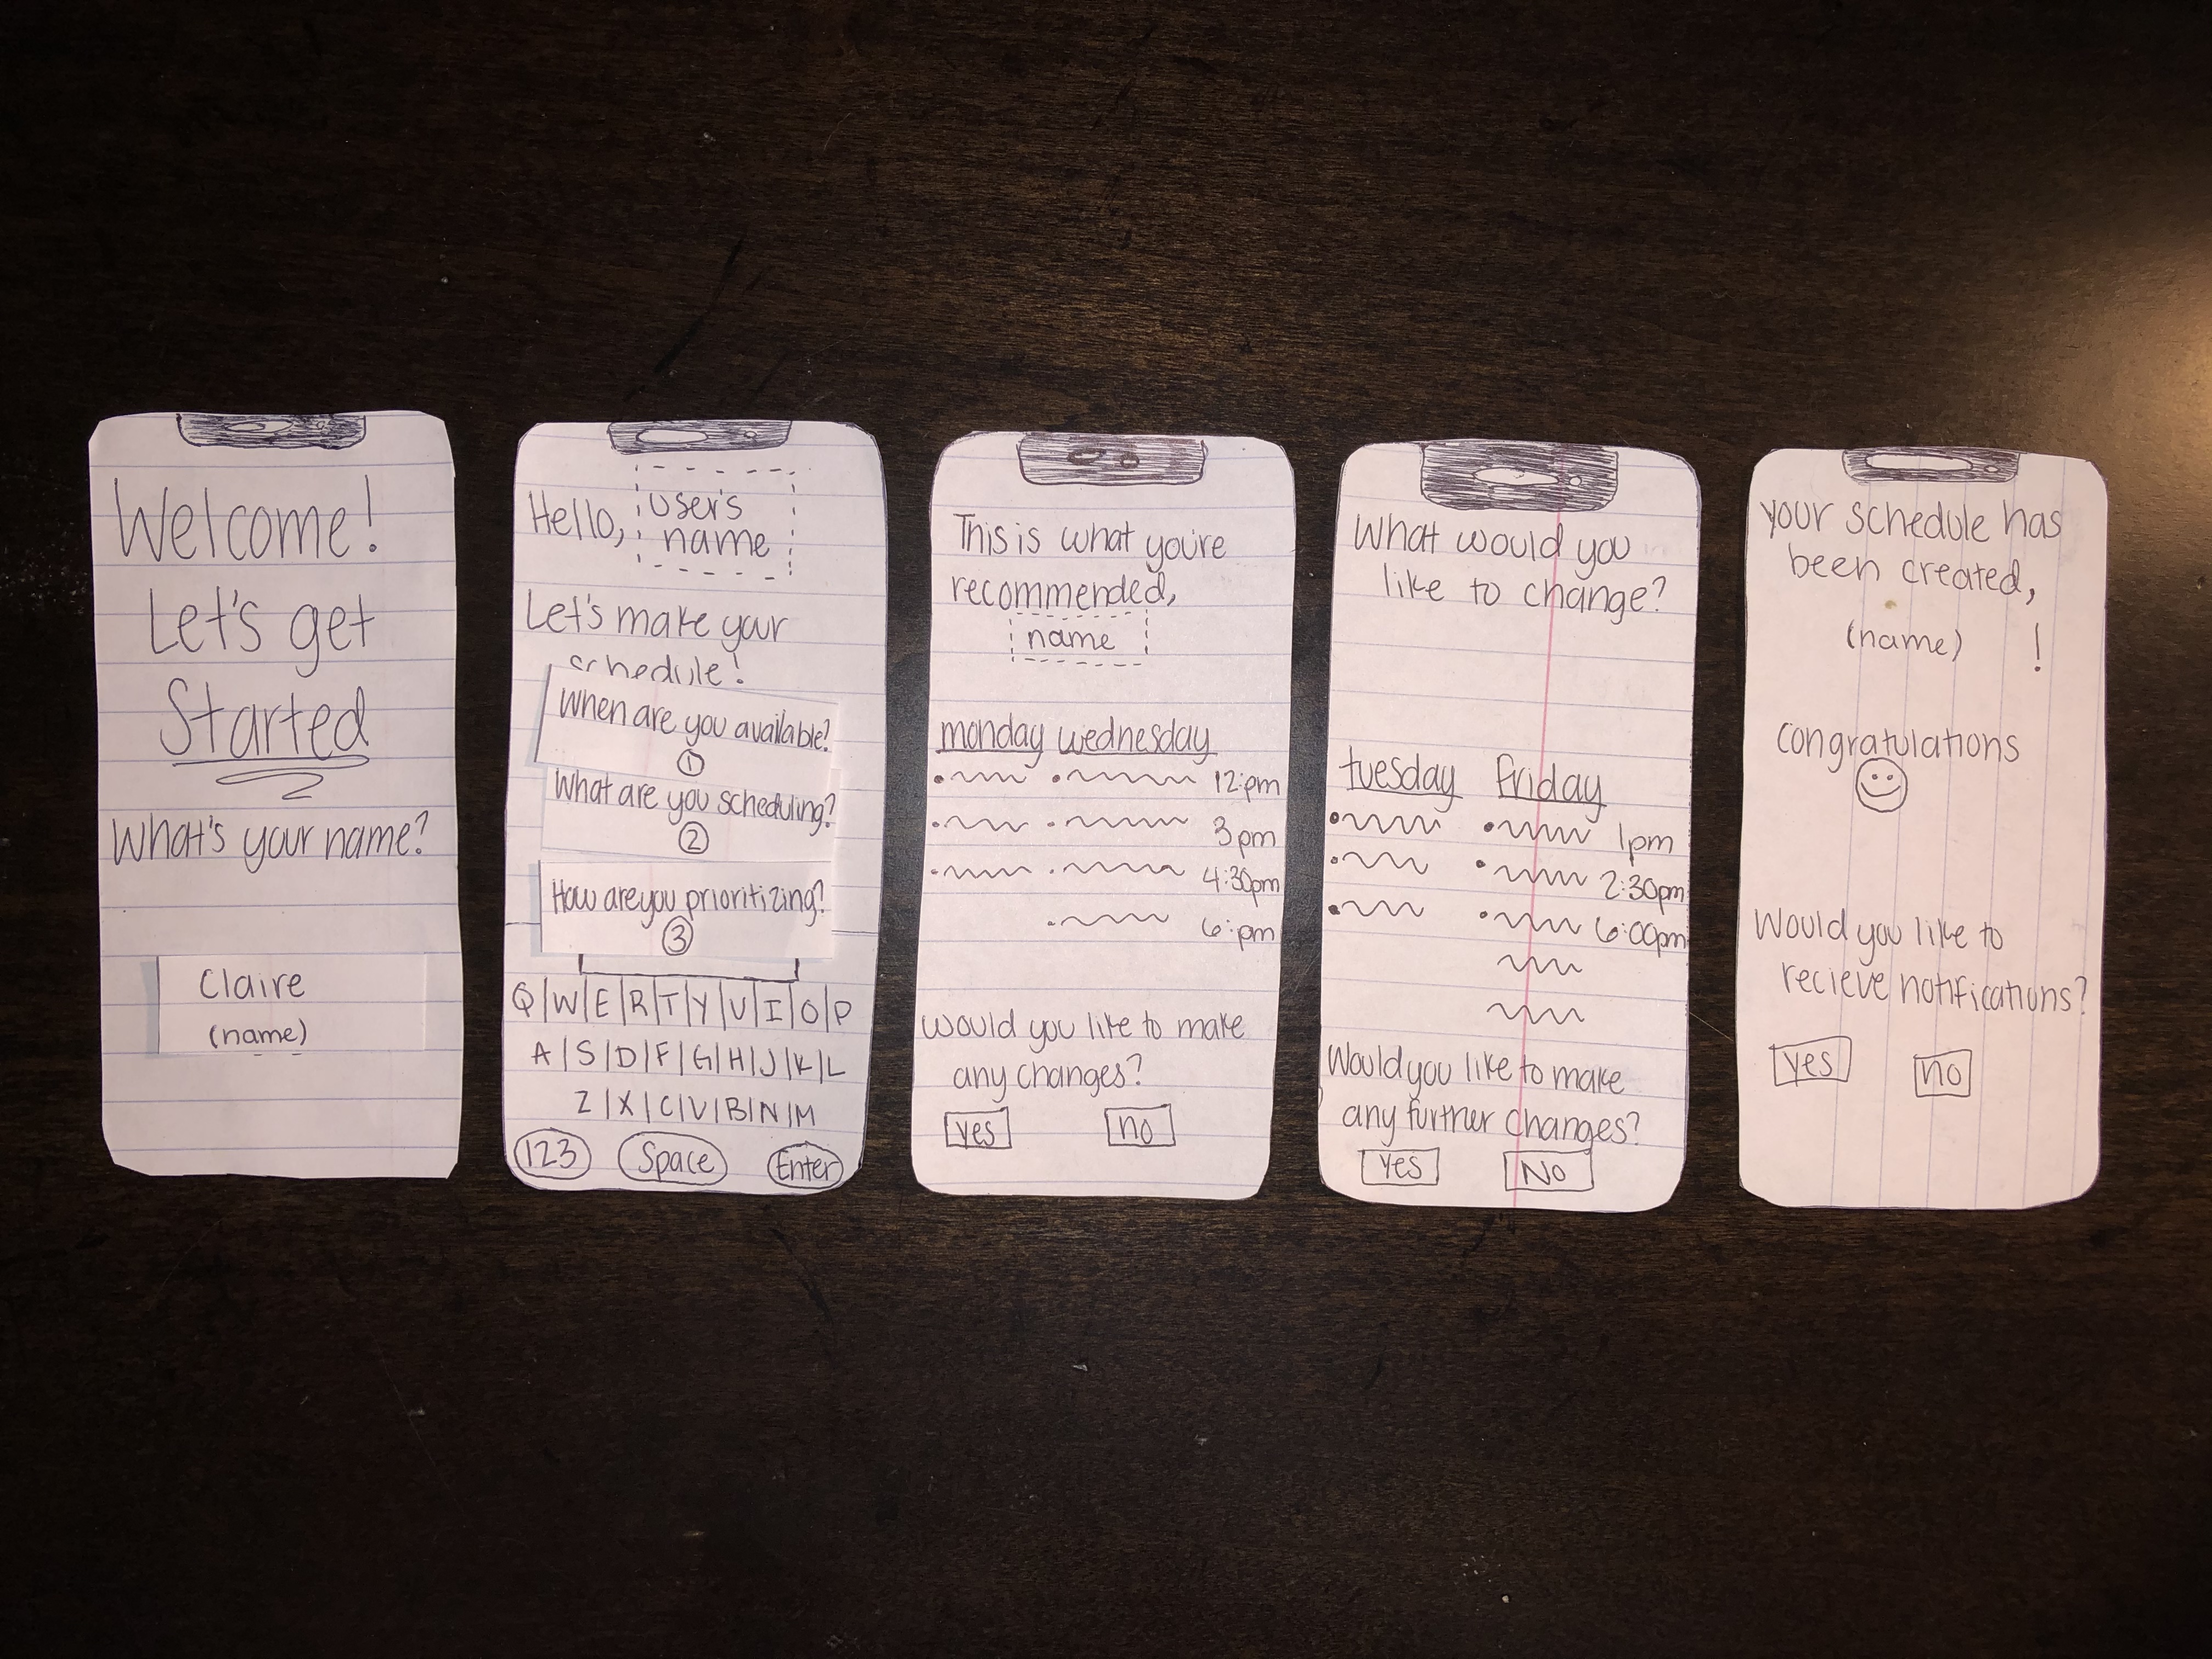 Welcome!
Let's get
Started
What's your name?
Claire
(name)
Hello, user's
name
Let's make your
schedule!
When are you available?
1
What are you scheduling?
2
How are you prioritizing?
3
Q|W|E|R|T|Y|U|I|O|P
A|S|D|F|G|H|J|K|L
Z|X|C|V|B|N|M
123 Space Enter
This is what you're
recommended,
name
monday wednesday
12:pm
3pm
4:30pm
6:pm
would you like to make
any changes?
Yes no
What would you
like to change?
tuesday friday
1pm
2:30pm
6:00pm
Would you like to make
any further changes?
Yes No
Your schedule has
been created,
(name) !
congratulations
Would you like to
recieve notifications?
Yes no